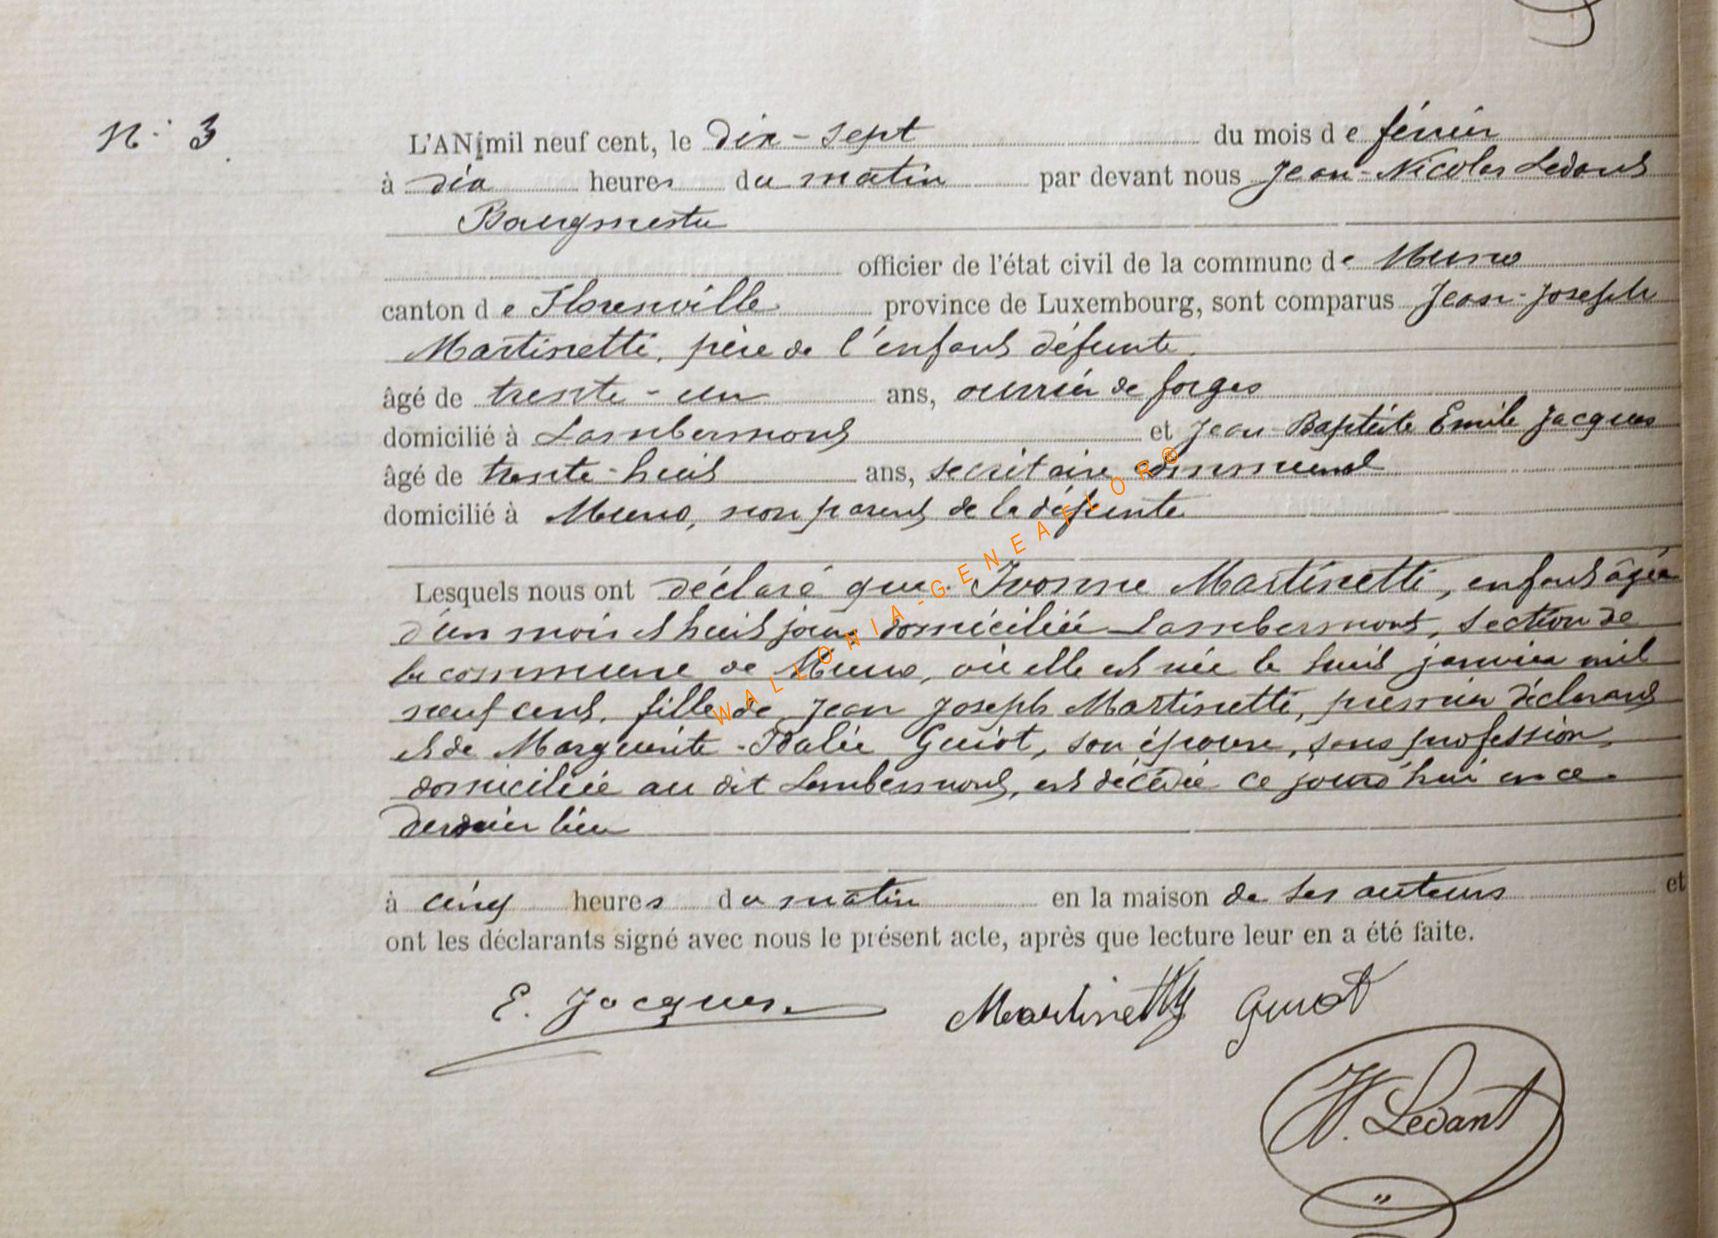 N° 3.
L'AN mil neuf cent, le dix-sept du mois de février
à dix heures du matin par devant nous Jean-Nicolas Ledant
Bourgmestre
officier de l'état civil de la commune de Muno
canton de Florenville province de Luxembourg, sont comparus Jean-Joseph
Martinetti, père de l'enfant défunte.
âgé de trente-un ans, ouvrier de forges
domicilié à Lambermont et Jean Baptiste Emile Jacques
âgé de trente-huit ans, secrétaire communal
domicilié à Muno, non parent de la défunte
Lesquels nous ont déclaré que Ivonne Martinetti, enfant âgée
d'un mois et huit jours domiciliée Lambermont, section de
la commune de Muno, où elle est née le huit janvier mil
neuf cent, fille de Jean Joseph Martinetti, premier déclarant
et de Marguerite-Idalie Guiot, son épouse, sans profession,
domiciliée au dit Lambermont, est décédée ce jourd'hui en ce
dernier lieu
à cinq heures du matin en la maison de ses auteurs et
ont les déclarants signé avec nous le présent acte, après que lecture leur en a été faite.
E. Jacques. Martinetty Guiot
N. Ledant
WALLONIA-GENEAFLOR®